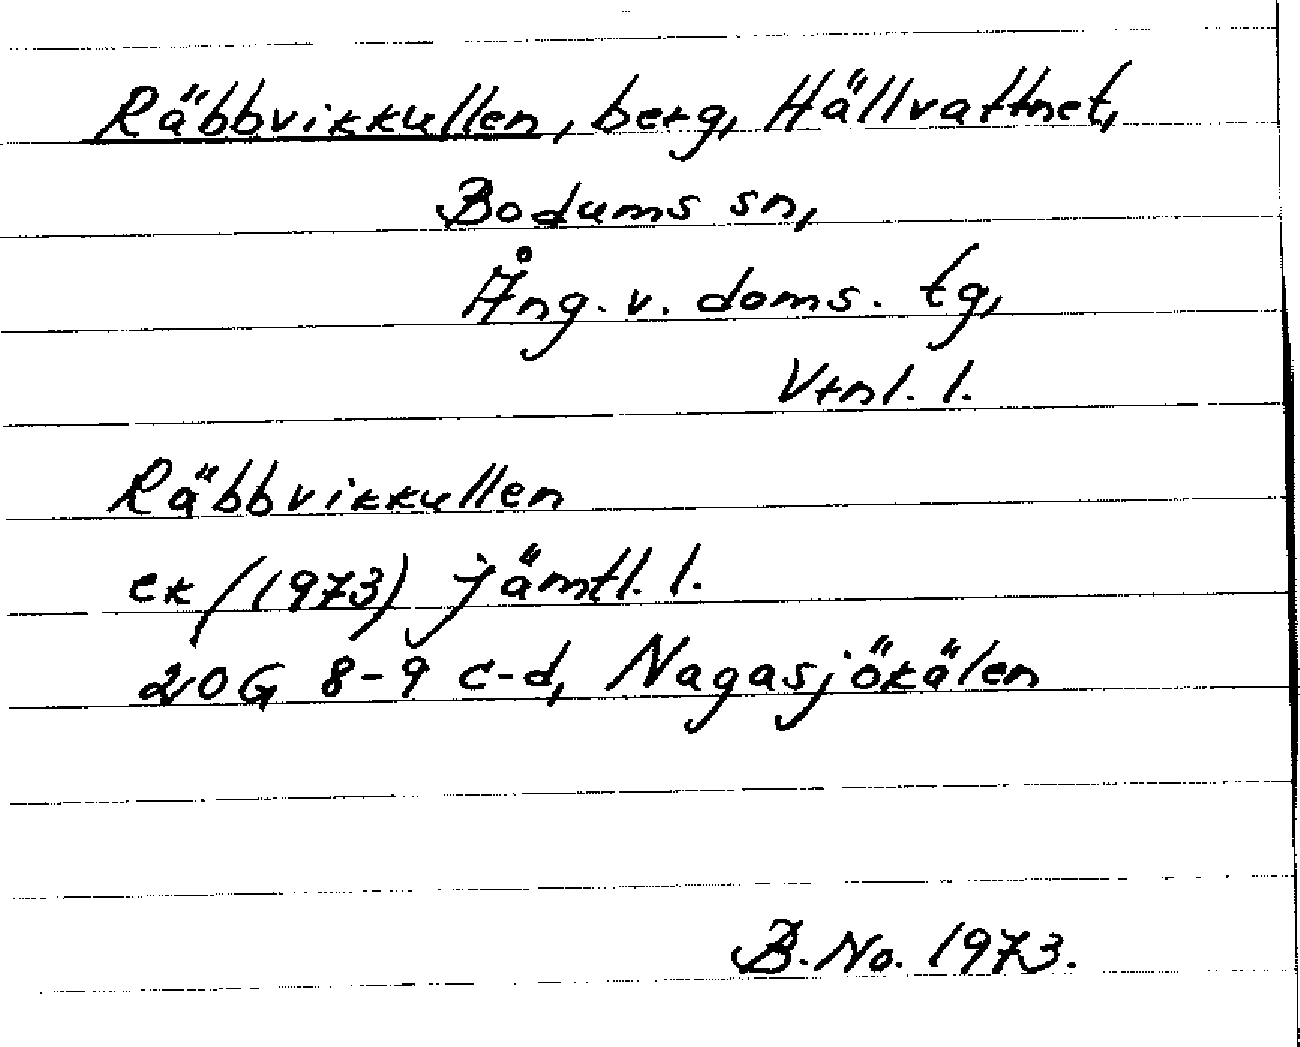 Räbbvikkullen, berg, Hällvattnet,
Bodums sn,
Ång. v. doms. tg,
Vtnl. l.
Räbbvikkullen
ek (1973) jämtl. l.
20G 8-9 c-d, Nagasjökälen
B. No. 1973.